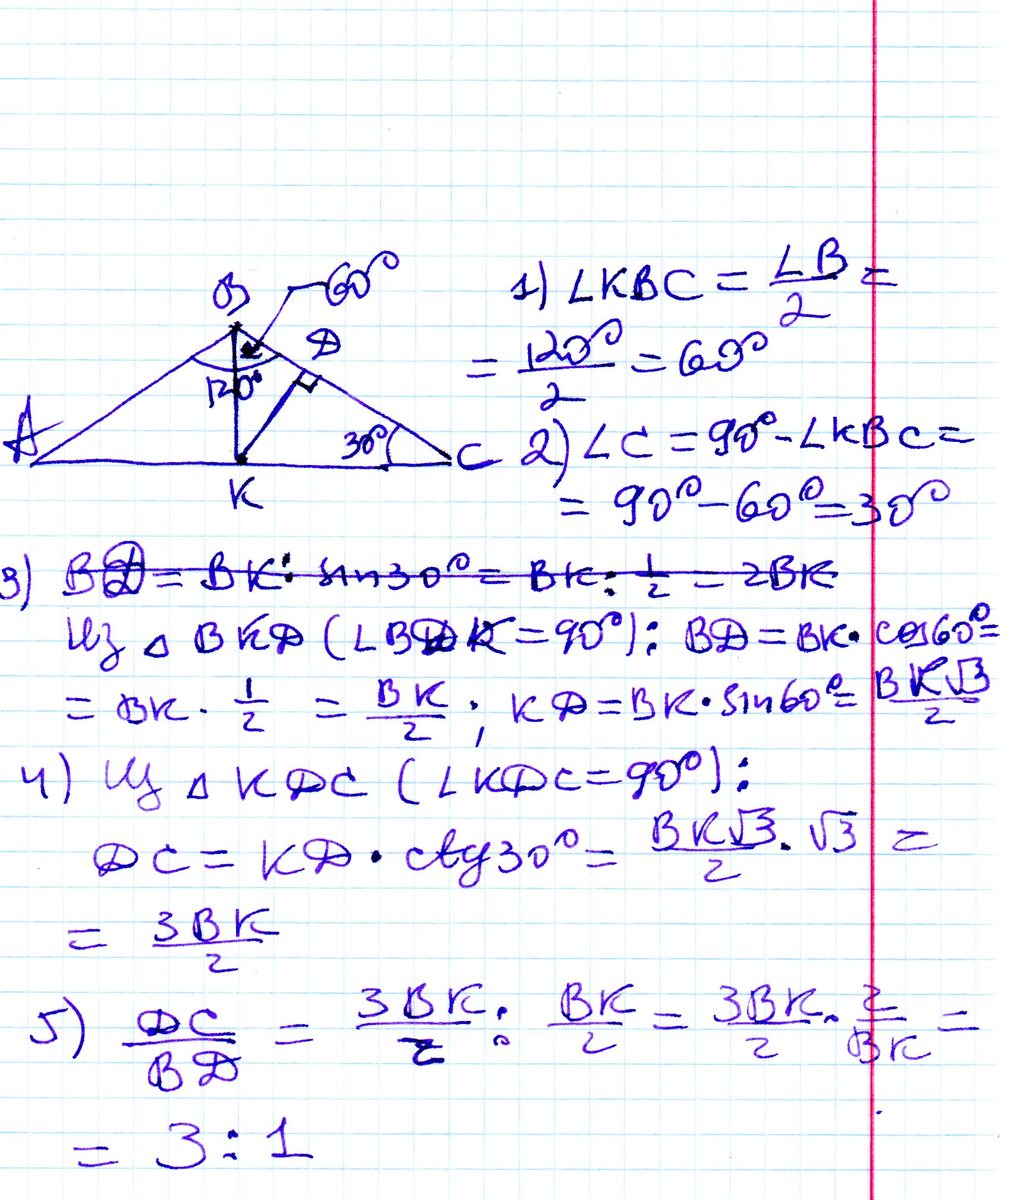 B 60° 1) ∠KBC = ∠B/2 =
D
120° = 120°/2 = 60°
A 30° C 2) ∠C = 90° - ∠KBC =
K = 90° - 60° = 30°
3) BD = BK : sin30° = BK : 1/2 = 2BK
Из △ BKD (∠BDK = 90°): BD = BK · cos60° =
= BK · 1/2 = BK/2 ; KD = BK · sin60° = BK√3/2
4) Из △ KDC (∠KDC = 90°):
DC = KD · ctg30° = BK√3/2 · √3 =
= 3BK/2
5) DC/BD = 3BK/2 : BK/2 = 3BK/2 · 2/BK =
= 3 : 1